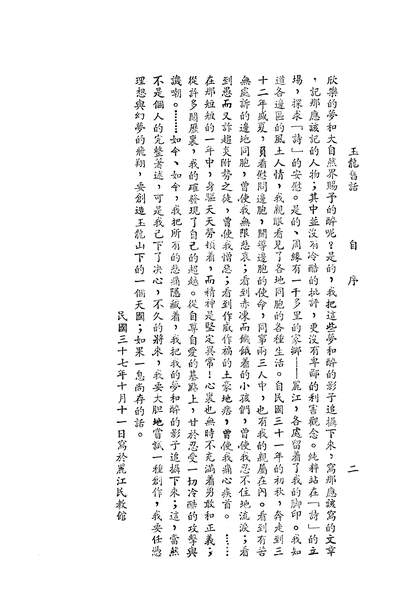 玉龍舊話　自序　二
欣樂的夢和大自然界賜予的醉呢？是的，我把這些夢和醉的影子追攝下來，寫那應該寫的文章
，記那應該記的人物；其中並沒有冷酷的批評，更沒有卑鄙的利害觀念。純粹站在「詩」的立
場，探求「詩」的安慰。是的、周緣有一千多里的家鄉——麗江，各處留着了我的脚印。我知
道各邊區的風土人情，我親眼看見了各地同胞的各種生活。自民國三十一年的初秋，奔走到三
十二年盛夏，負着慰問邊胞，開導邊胞的使命，同事兩三人中，也有我的親屬在內。看到有苦
無處訴的邊地同胞，曾使我無限悲哀；看到赤凍而饑餓着的小孩們，曾使我忍不住地流淚；看
到愚而又詐趨炎附勢之徒，曾使我憎惡；看到作威作福的土豪地痞，曾使我痛心疾首。……
在那短短的一年中，身軀天天勞頓着，而精神是堅定異常！心裏也無時不充滿着勇敢和正義；
從許多閱歷裏，我的確發現了自己的超越。從自尊自愛的基點上，甘於忍受一切冷酷的攻擊與
譏嘲。……如今、如今，我把所有的悲痛隱藏着，我把我的夢和醉的影子追攝下來；這，當然
不是個人的完整著述，可是我已下了決心，不久的將來，我要大胆地嘗試一種創作，我要任憑
理想與幻夢的飛翔，要創造玉龍山下的一個天國；如果一息尚存的話。
民國三十七年十月十一日寫於麗江民教館